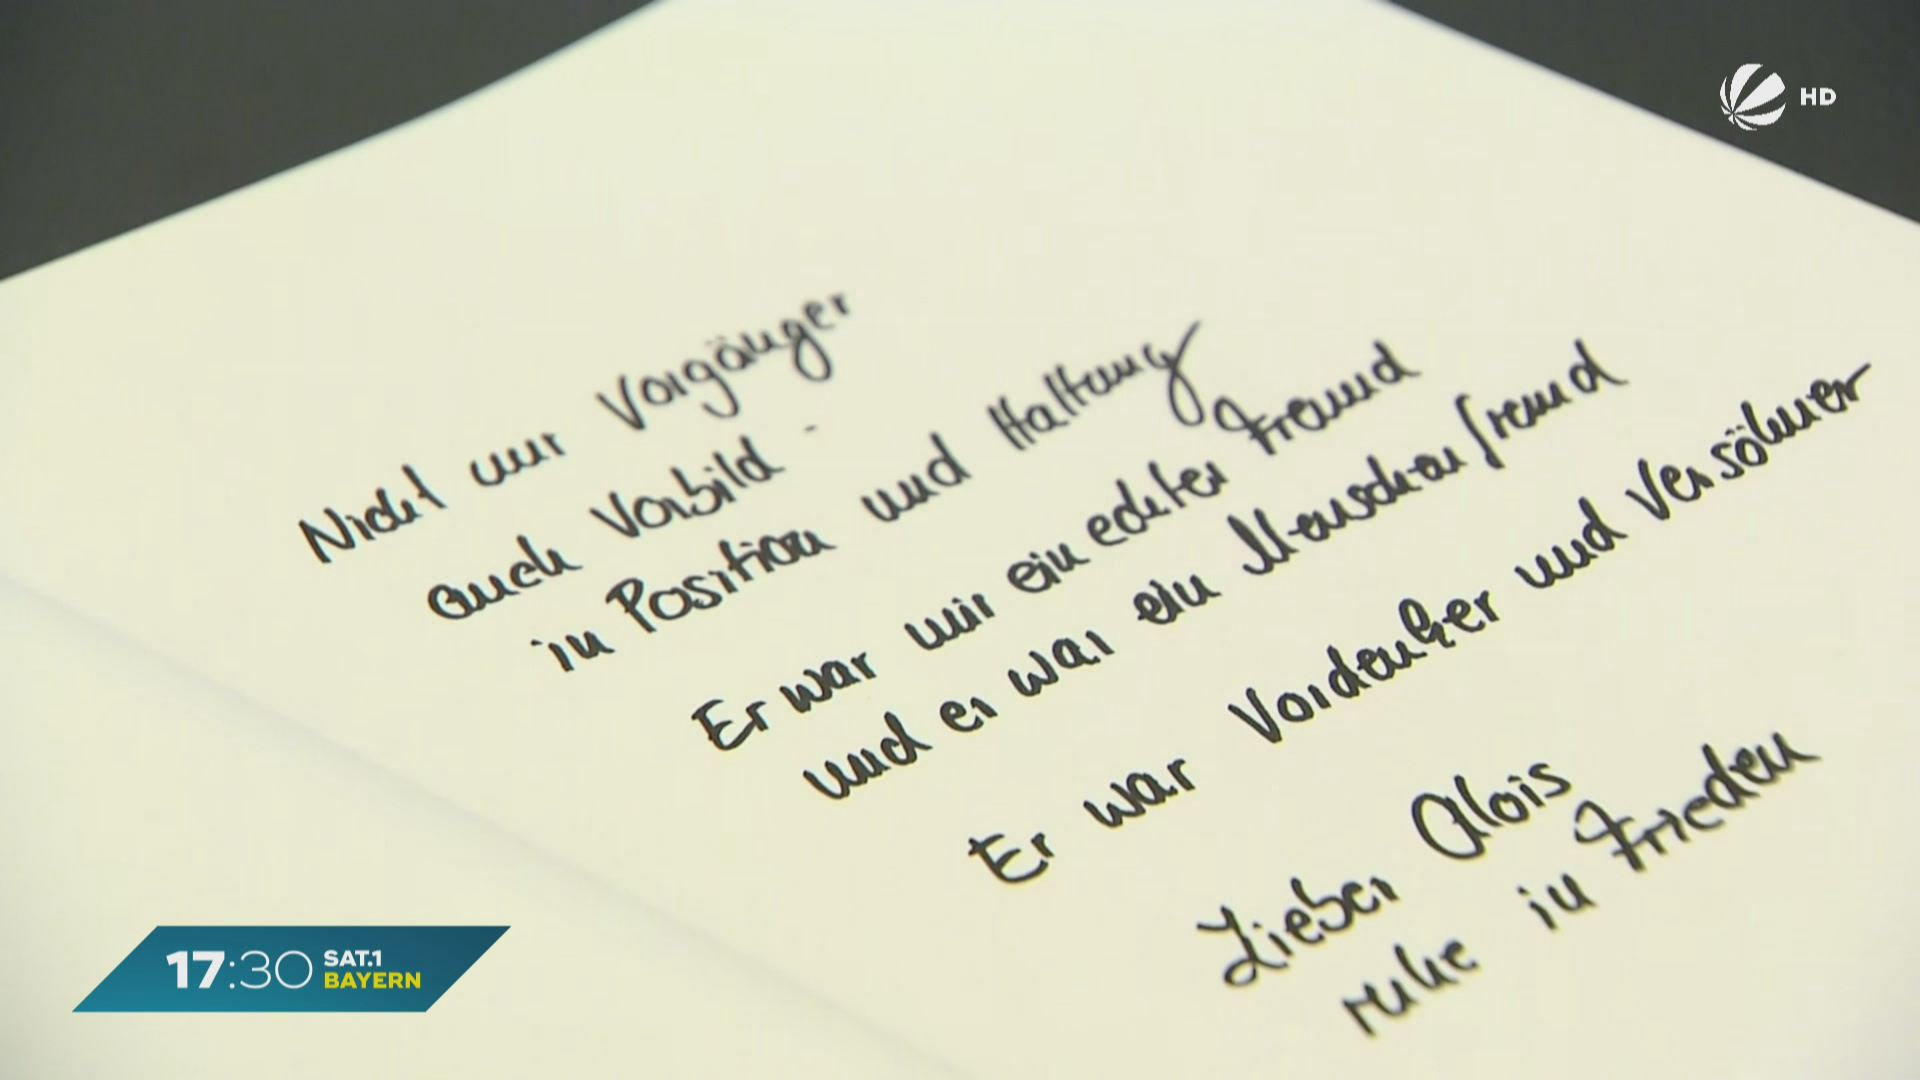 HD
Nicht nur Vorgänger
auch Vorbild -
in Position und Haltung
Er war mir ein echter Freund
und er war ein Menschenfreund
Er war Vordenker und Versöhner
Lieber Alois
ruhe in Frieden
17:30 SAT.1
BAYERN